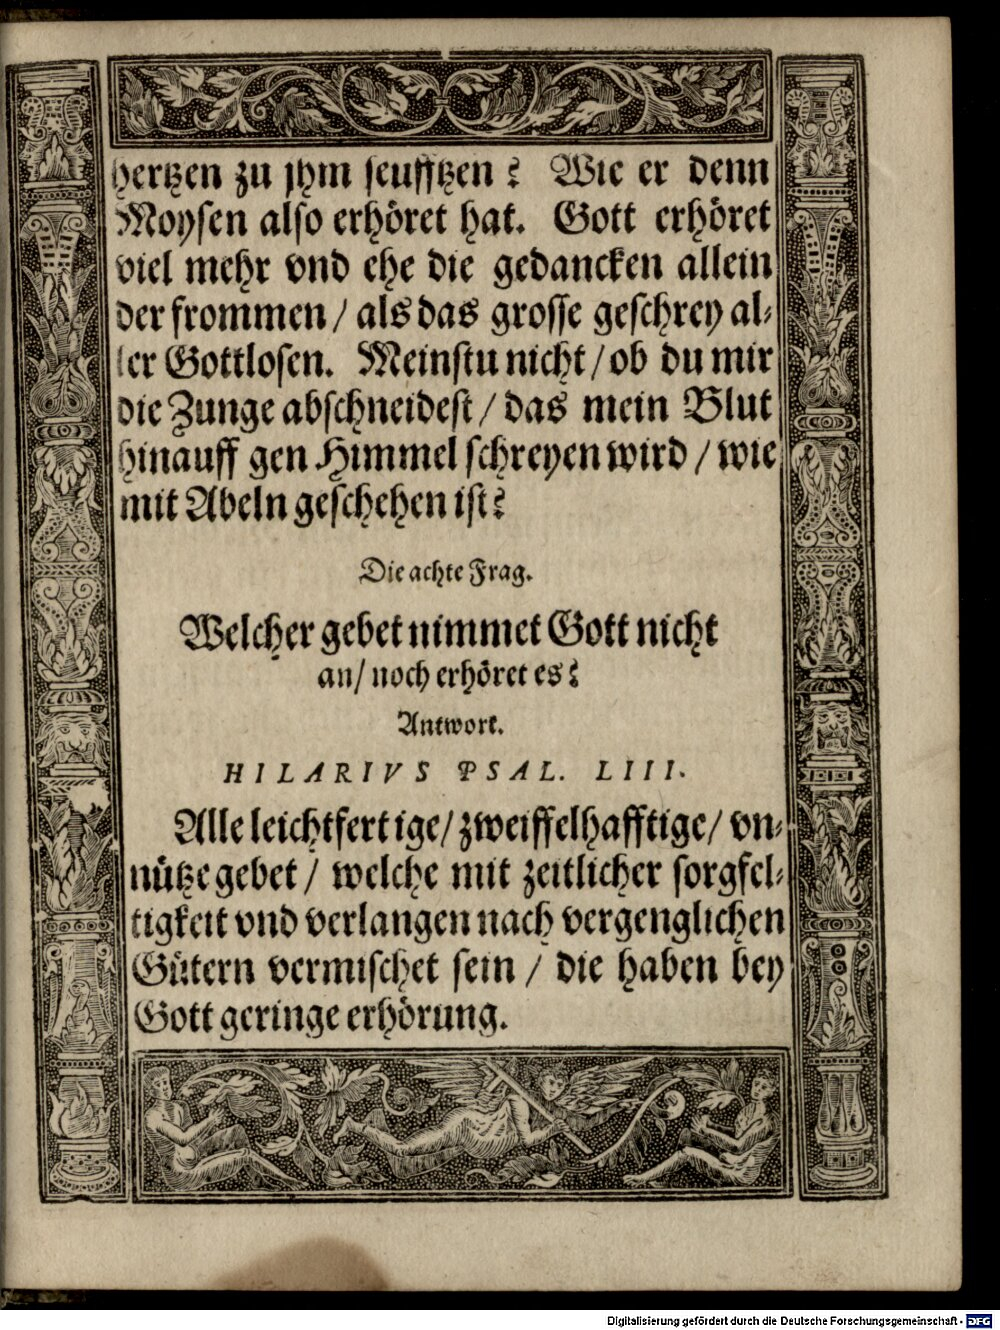 hertzen zu jhm seufftzen? Wie er denn
Moysen also erhöret hat. Gott erhöret
viel mehr vnd ehe die gedancken allein
der frommen / als das grosse geschrey al-
ler Gottlosen. Meinstu nicht / ob du mir
die Zunge abschneidest / das mein Blut
hinauff gen Himmel schreyen wird / wie
mit Abeln geschehen ist?
Die achte Frag.
Welcher gebet nimmet Gott nicht
an / noch erhöret es?
Antwort.
HILARIVS PSAL. LIII.
Alle leichtfertige / zweiffelhafftige / vn-
nütze gebet / welche mit zeitlicher sorgfel-
tigkeit vnd verlangen nach vergenglichen
Gütern vermischet sein / die haben bey
Gott geringe erhörung.
Digitalisierung gefördert durch die Deutsche Forschungsgemeinschaft - DFG